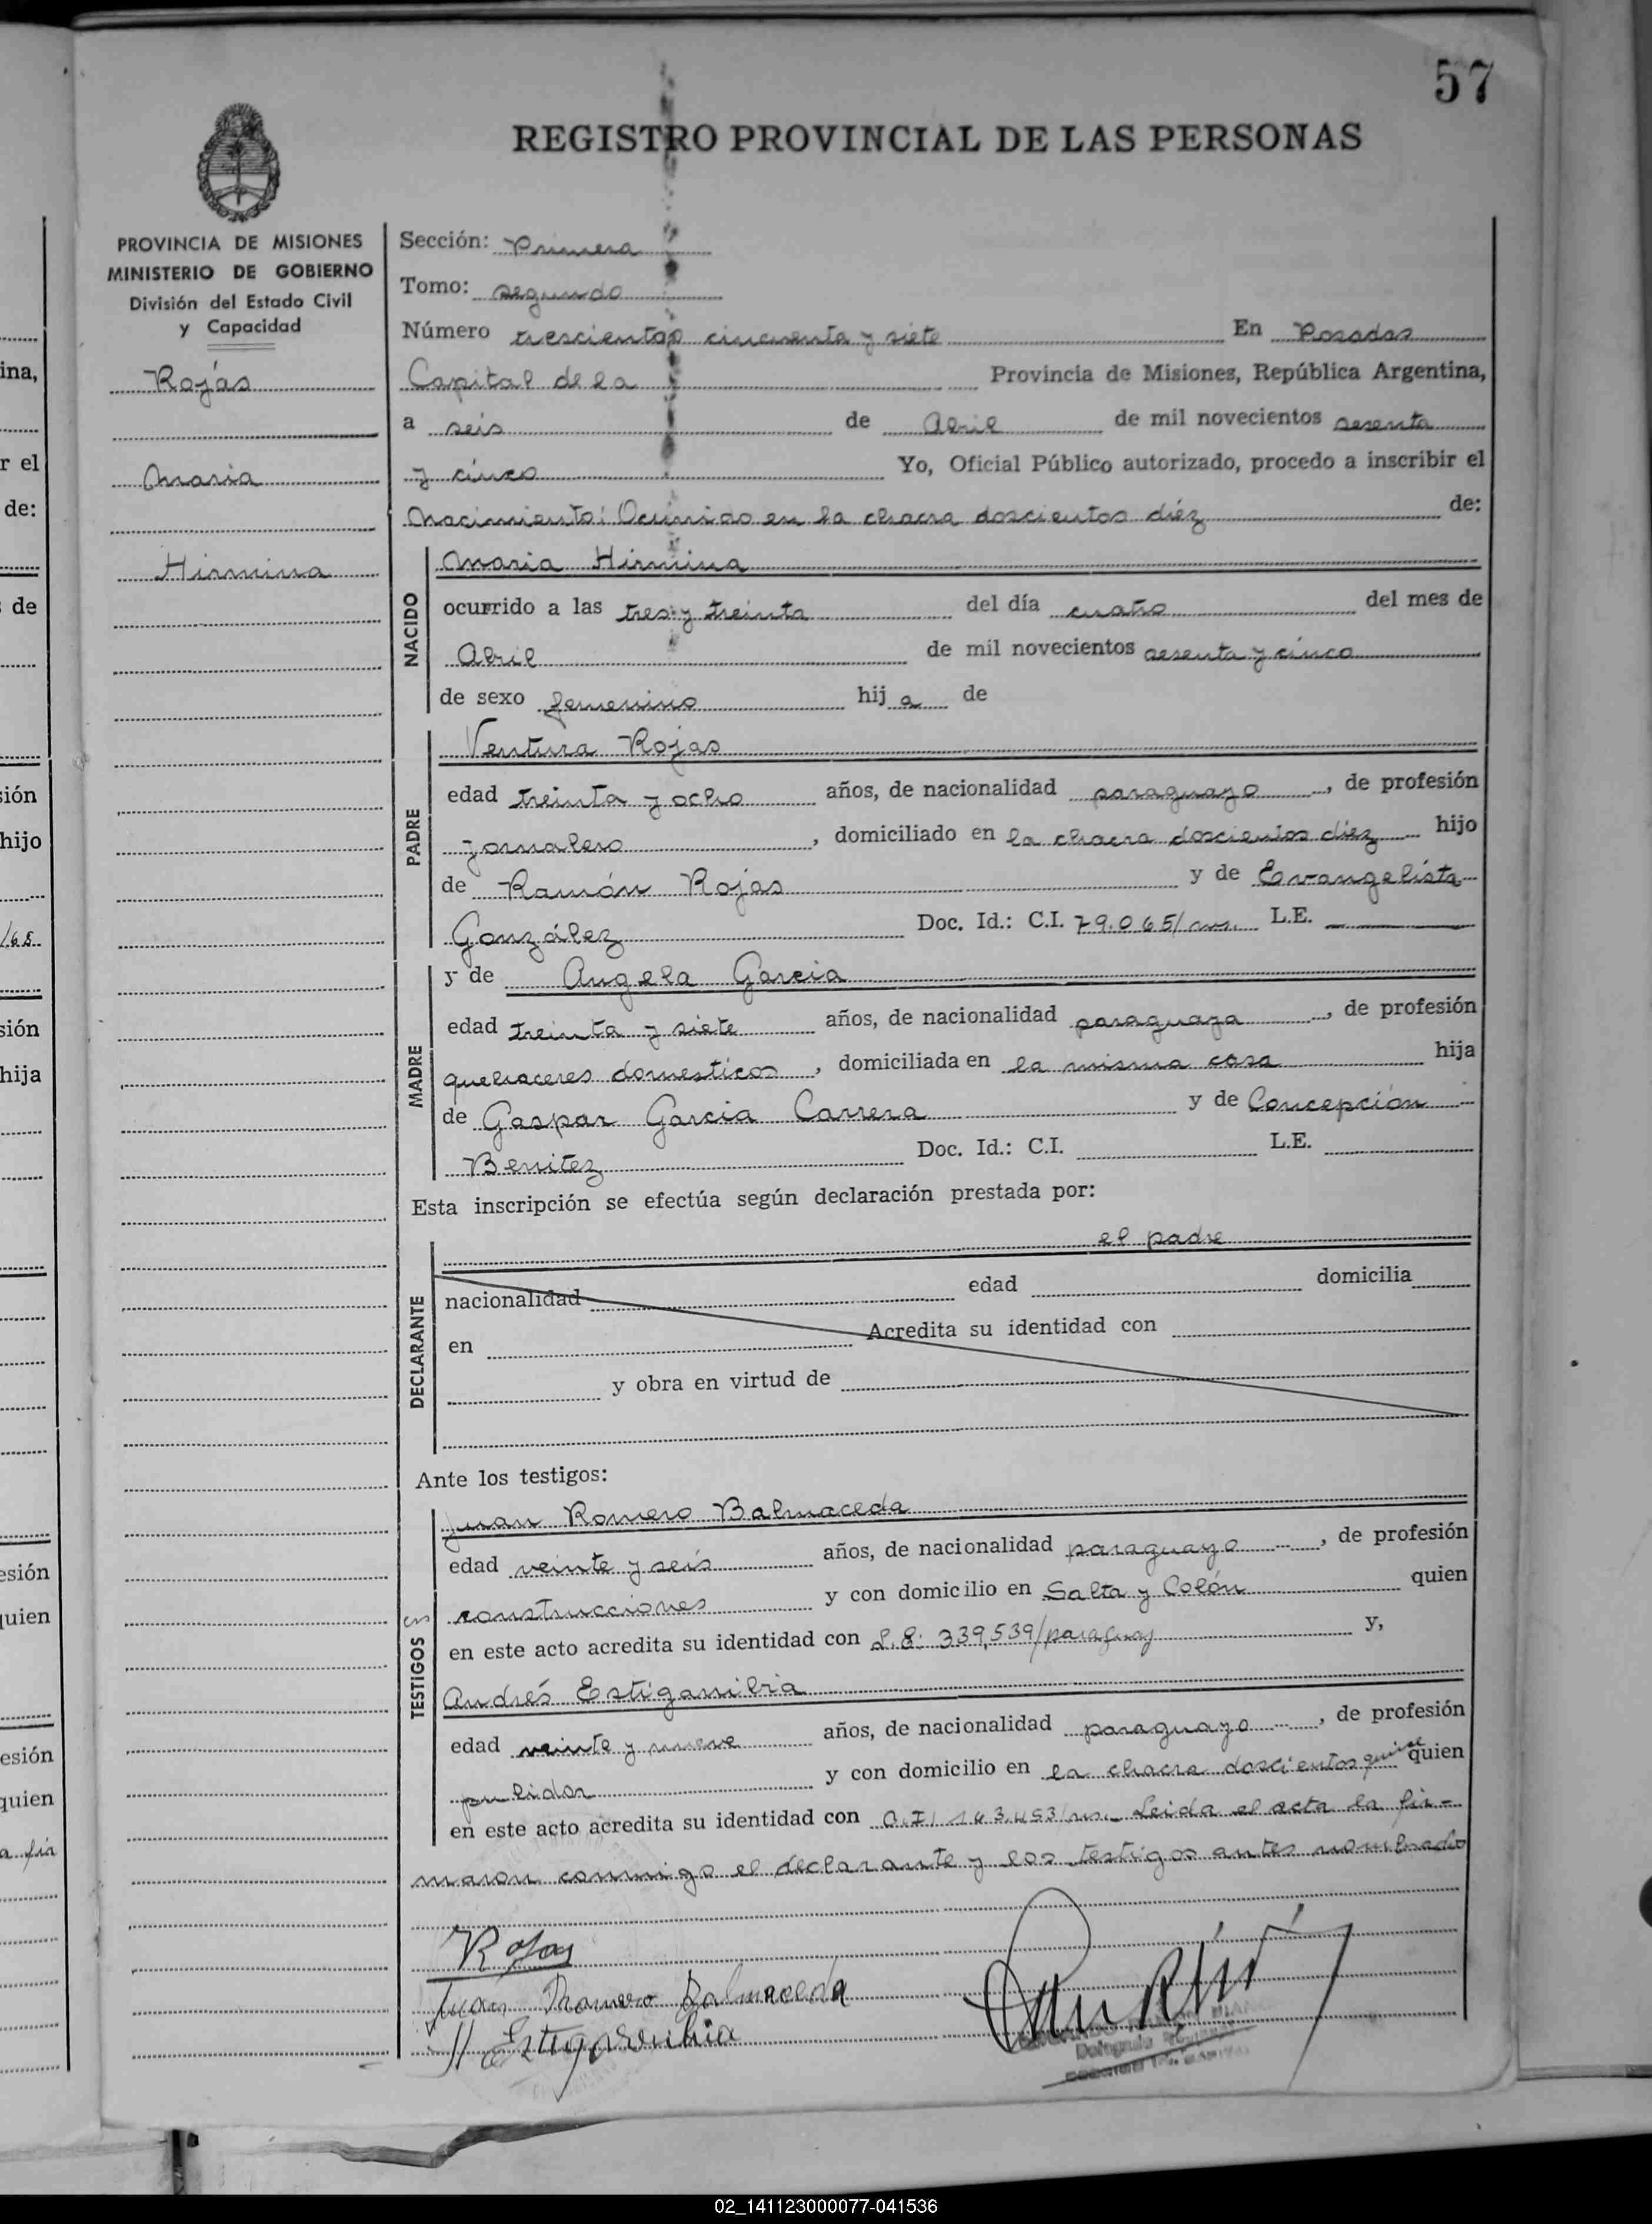 57
REGISTRO PROVINCIAL DE LAS PERSONAS
PROVINCIA DE MISIONES
MINISTERIO DE GOBIERNO
División del Estado Civil
y Capacidad
Rojas
Maria
Hirmina
Sección: Primera
Tomo: segundo
Número trescientos cincuenta y siete En Posadas
Capital de la Provincia de Misiones, República Argentina,
a seis de Abril de mil novecientos sesenta
y cinco Yo, Oficial Público autorizado, procedo a inscribir el
Nacimiento: Ocurrido en la chacra doscientos diéz de:
NACIDO
Maria Hirmina
ocurrido a las tres y treinta del día cuatro del mes de
Abril de mil novecientos sesenta y cinco
de sexo femenino hij a de
PADRE
Ventura Rojas
edad treinta y ocho años, de nacionalidad paraguayo, de profesión
jornalero, domiciliado en la chacra doscientos diéz hijo
de Ramón Rojas y de Evangelista
González Doc. Id.: C.I. 79.065/ms. L.E.
MADRE
y de Angela Garcia
edad treinta y siete años, de nacionalidad paraguaya, de profesión
quehaceres domesticos, domiciliada en la misma casa hija
de Gaspar Garcia Carrera y de Concepción
Benitez Doc. Id.: C.I. L.E.
Esta inscripción se efectúa según declaración prestada por:
DECLARANTE
el padre
nacionalidad edad domicilia
en Acredita su identidad con
y obra en virtud de
Ante los testigos:
TESTIGOS
Juan Romero Balmaceda
edad veinte y seis años, de nacionalidad paraguayo, de profesión
construcciones y con domicilio en Salta y Colón quien
en este acto acredita su identidad con 339,539/paraguay y,
Andrés Estigarribia
edad veinte y nueve años, de nacionalidad paraguayo, de profesión
pulidor y con domicilio en la chacra doscientos quince quien
en este acto acredita su identidad con C.I. 143.453/ms. Leida el acta la fir-
maron conmigo el declarante y los testigos antes nombrados
Rojas
Juan Romero Balmaceda
Estigarribia
02_141123000077-041536